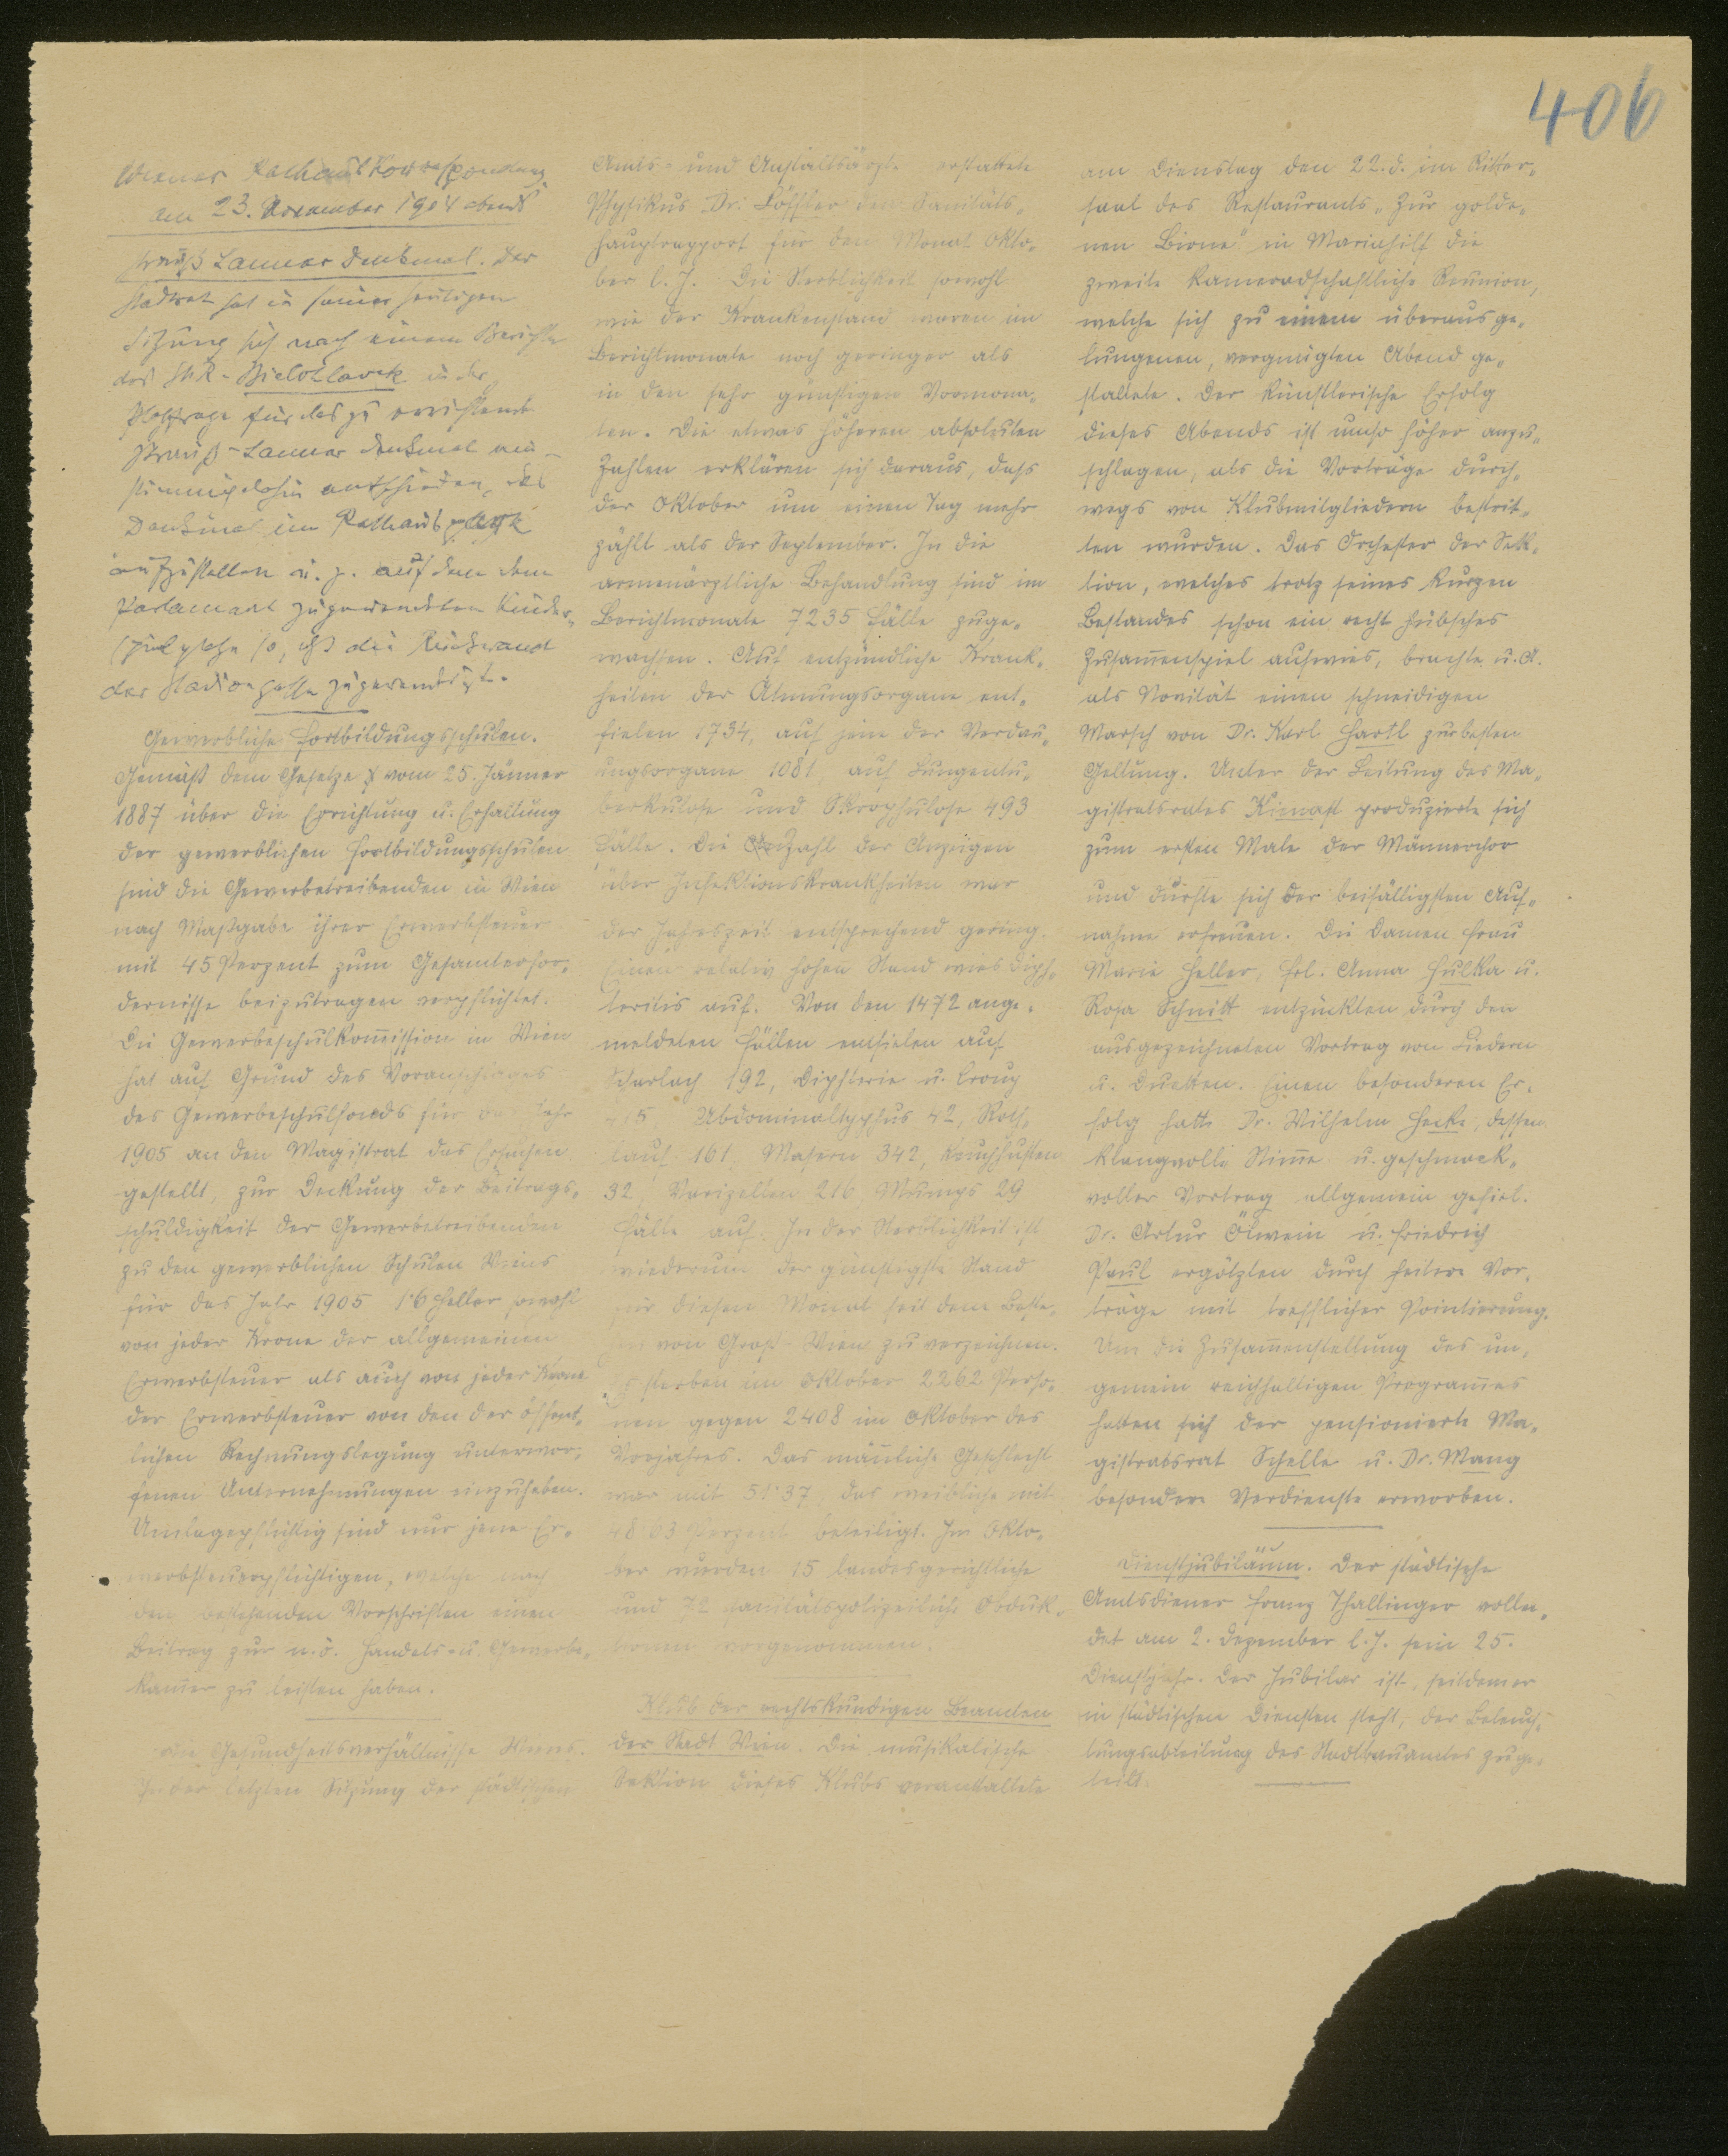 406
Wiener Rathauskorrespondenz
am 23. November 1904 abends
Strauß Lanner Denkmal. Der
Stadtrat hat in seiner heutigen
Sitzung sich nach einem Berichte
des StR. Bielohlawek in der
Platzfrage für das zu errichtende
Strauß-Lanner Denkmal ein-
stimmig dahin entschieden, das
Denkmal im Rathauspark
aufzustellen u. z. auf dem dem
Parlament zugewendeten Kinder-
spielplatze so, daß die Rückwand
der Stadiongasse zugewendet ist.
Gewerbliche Fortbildungsschulen.
Gemäß dem Gesetze vom 25. Jänner
1887 über die Errichtung u. Erhaltung
der gewerblichen Fortbildungsschulen
sind die Gewerbetreibenden in Wien
nach Maßgabe ihrer Erwerbsteuer
mit 45 Perzent zum Gesamterfor-
dernisse beizutragen verpflichtet.
Die Gewerbeschulkom̄ission in Wien
hat auf Grund des Voranschlages
des Gewerbeschulfonds für das Jahr
1905 an den Magistrat das Ersuchen
gestellt, zur Deckung der Beitrags-
schuldigkeit der Gewerbetreibenden
zu den gewerblichen Schulen Wiens
für das Jahr 1905 1·6 Heller sowohl
von jeder Krone der allgemeinen
Erwerbsteuer als auch von jeder Krone
der Erwerbsteuer von den der öffent-
lichen Rechnungslegung unterwor-
fenen Unternehmungen einzuheben.
Umlagepflichtig sind nur jene Er-
werbsteuerpflichtigen, welche nach
den bestehenden Vorschriften einen
Beitrag zur n.ö. Handels- u. Gewerbe-
kam̄er zu leisten haben.
Die Gesundheitsverhältnisse Wiens.
In der letzten Sitzung der städtischen
Amts- und Anstaltsärzte erstattete
Physikus Dr. Löffler den Sanitäts-
hauptrapport für den Monat Okto-
ber l. J. Die Sterblichkeit sowohl
wie der Krankenstand waren im
Berichtmonate noch geringer als
in den sehr günstigen Vormona-
ten. Die etwas höheren absoluten
Zahlen erklären sich daraus, daß
der Oktober um einen Tag mehr
zählt als der September. In die
armenärztliche Behandlung sind im
Berichtmonate 7235 Fälle zuge-
wachsen. Auf entzündliche Krank-
heiten der Atmungsorgane ent-
fielen 1734, auf jene der Verdau-
ungsorgane 1081 auf Lungentu-
berkulose und Skrophulose 493
Fälle. Die Anzahl der Anzeigen
über Infektionskrankheiten war
der Jahreszeit entsprechend gering.
Einen relativ hohen Stand wies Diph-
teritis auf. Von den 1472 ange-
meldeten Fällen entfielen auf
Scharlach 192, Diphterie u. Croup
Abdominaltyphus 42, Roth-
lauf 161, Masern 342, Keuchhusten
32, Varizellen 216 Mumps 29
Fälle auf. In der Sterblichkeit ist
wiederum der günstigste Stand
für diesen Monat seit dem Beste-
hen von Groß-Wien zu verzeichnen.
Es starben im Oktober 2262 Perso-
nen gegen 2408 im Oktober des
Vorjahres. Das män̄liche Geschlecht
war mit 51·37 das weibliche mit
48·63 Perzent beteiligt. Im Okto-
ber wurden 15 landesgerichtliche
und 72 sanitätspolizeiliche Obduk-
tionen vorgenommen.
Klub der rechtskundigen Beamten
der Stadt Wien. Die musikalische
Sektion dieses Klubs veranstaltete
am Dienstag den 22. d. im Ritter-
saal des Restaurants „Zur golde-
nen Birne" in Mariahilf die
zweite kameradschaftliche Reunion,
welche sich zu einem überaus ge-
lungenen, vergnügten Abend ge-
staltete. Der künstlerische Erfolg
dieses Abends ist umso höher anzu-
schlagen, als die Vorträge durch-
wegs von Klubmitgliedern bestrit-
ten wurden. Das Orchester der Sek-
tion, welches trotz seines kurzen
Bestandes schon ein recht hübsches
Zusam̄enspiel aufwies, brachte u. A.
als Novität einen schneidigen
Marsch von Dr. Karl Hartl zur besten
Geltung. Unter der Leitung des Ma-
gistratsrates Kienast produzierte sich
zum ersten Male der Männerchor
und durfte sich der beifälligsten Auf-
nahme erfreuen. Die Damen Frau
Marie Heller, Frl. Anna Hulka u.
Rosa Schnitt entzückten durch den
ausgezeichneten Vortrag von Liedern
u. Duetten. Einen besonderen Er-
folg hatte Dr. Wilhelm Hecke, dessen
klangvolle Stim̄e u. geschmack-
voller Vortrag allgemein gefiel.
Dr. Artur Ölwein u. Friedrich
Paul ergötzten durch heitere Vor-
träge mit trefflicher Pointierung.
Um die Zusam̄enstellung des un-
gemein reichhaltigen Program̄es
hatten sich der pensionierte Ma-
gistratsrat Schelle u. Dr. Mang
besondere Verdienste erworben.
Dienstjubiläum. Der städtische
Amtsdiener Franz Thallinger vollen-
det am 2. Dezember l. J. sein 25.
Dienstjahr. Der Jubilar ist, seitdem er
in städtischen Diensten steht, der Beleuch-
tungsabteilung des Stadtbauamtes zuge-
teilt.